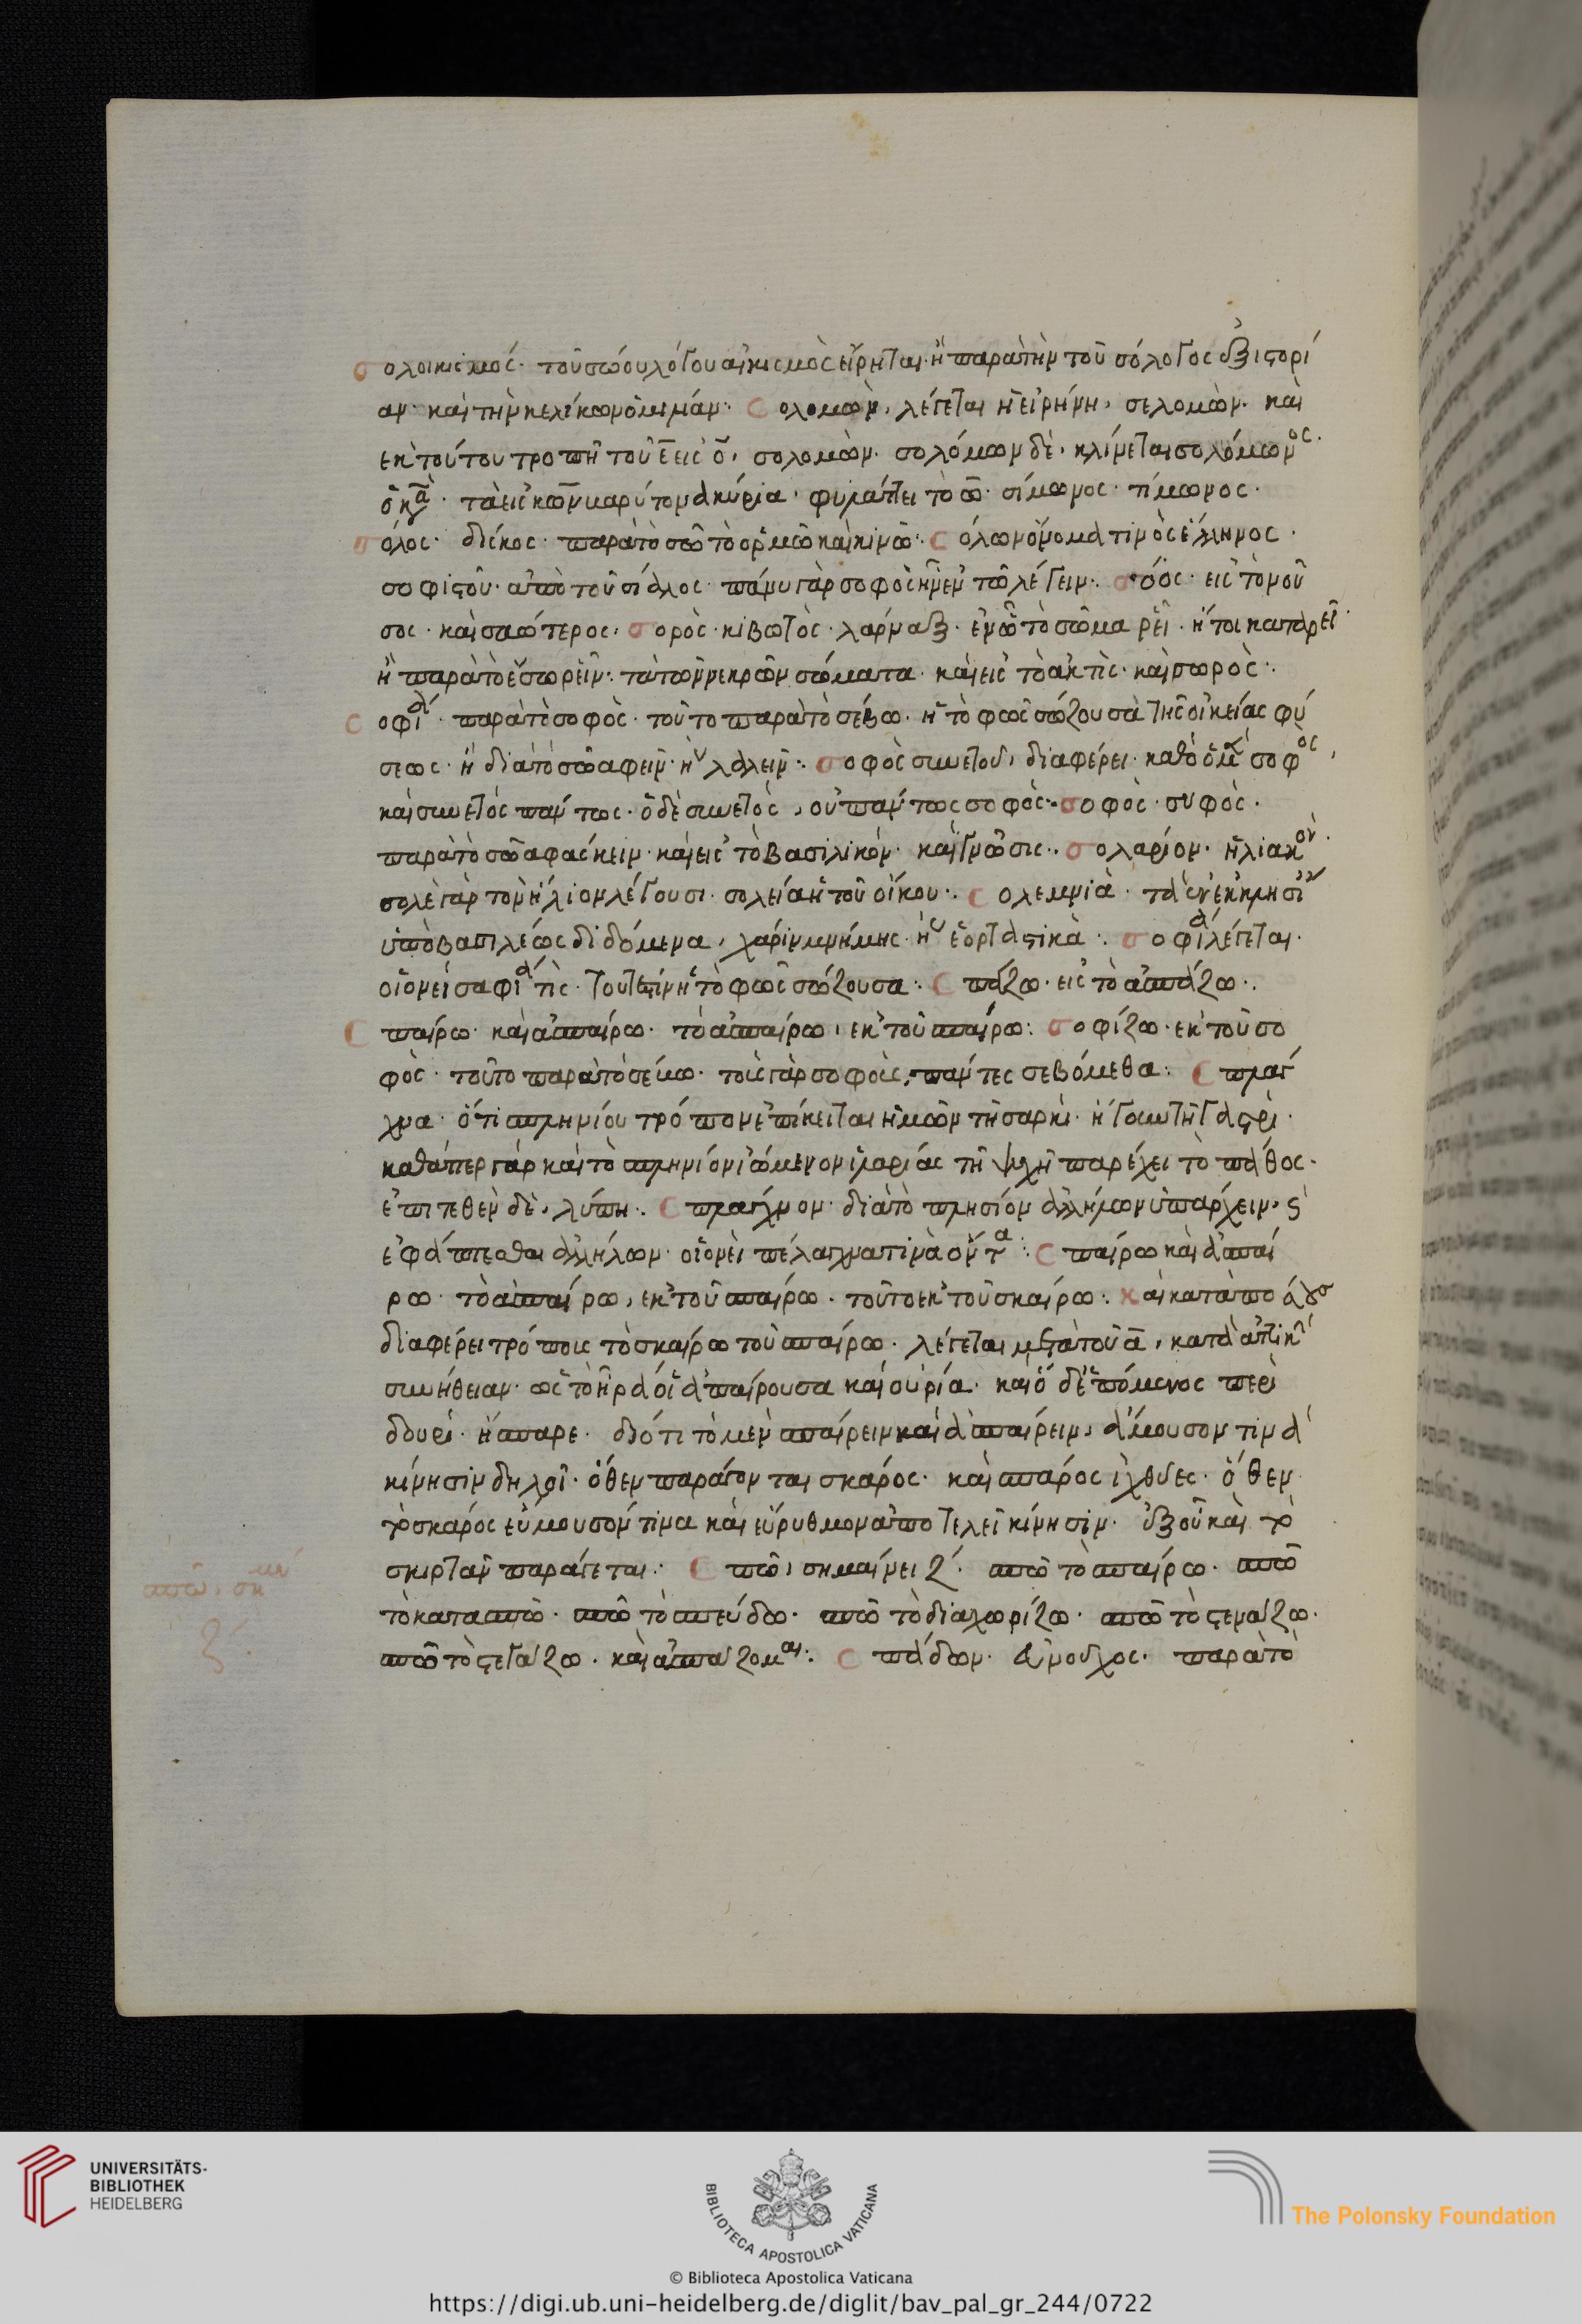 σολοικισμός· τοῦ σώου λόγου αἰκισμὸς εἴρηται· ἢ παρὰ τὴν τοῦ σόλογος ἐξιστορί
αν· καὶ τὴν κελίκων ὁμιμίαν· Σολομὼν, λέγεται ἡ εἰρήνη, σελομὼν· καὶ
ἐκ τούτου τροπῆ τοῦ ε̄ εἰς ο̄, σολομὼν· σολόμων δὲ, κλίνεται σολόμωνος·
τὰ εἰς ων βαρύτονα κύρια, φυλάττει τὸ ω̄· σίμωνος· τίμωνος·
σόλος· δίσκος· παρὰ τὸ σῶ τὸ ὁρμῶ καὶ κινῶ· σόλων ὄνομά τινὸς ἕλληνος·
σοφιστοῦ· ἀπὸ τοῦ σίαλος· πάνυ γὰρ σοφὸς ἦν ἐν τῶ λέγειν· σόος· εἰς τὸ νοῦ
σος· καὶ σαώτερος· σορὸς· κιβωτὸς· λάρναξ· ἐν ὧ τὸ σῶμα ῥεῖ· ἤτοι καταρεῖ·
ἢ παρὰ τὸ ἔσω ῥεῖν· τὰ τῶν νεκρῶν σώματα· καὶ εἰς τὸ ἀκτὶς· καὶ σωρὸς·
σοφία· παρὰ τὸ σοφὸς· τοῦτο παρὰ τὸ σέβω· ἢ τὸ φῶς σώζουσα τῆς οἰκείας φύ
σεως· ἢ διὰ τὸ σῶα φεῖν· ἢ λαλεῖν· σοφὸς συνετοῦ, διαφέρει· καθὸ ὁ μὲν σοφὸς,
καὶ συνετός πάντως· ὁ δὲ συνετὸς, οὐ πάντως σοφός· σοφὸς· συφὸς·
παρὰ τὸ σῶα φάσκειν· καὶ εἰς τὸ βασιλικόν· καὶ γνῶσις· σολάριον· ἡλιακὸν·
σολὲ γὰρ τὸν ἥλιον λέγουσι· σολεία ἡ τοῦ οἴκου· σολεμνιὰ· τὰ ἐν ἐκκλησίαις
ὑπὸ βασιλέως διδόμενα, χάριν μνήμης· ἢ ἑορταστικὰ· σοφία λέγεται·
οἱονεὶ σαφία τὶς· τουτέστιν ἡ τὸ φῶς σώζουσα· σπάζω· εἰς τὸ ἀσπάζω·
σπαίρω· καὶ ἀσπαίρω· τὸ ἀσπαίρω, ἐκ τοῦ σπαίρω· σοφίζω· ἐκ τοῦ σο
φὸς· τοῦτο παρὰ τὸ σέβω· τοὺς γὰρ σοφοὺς, πάντες σεβόμεθα· σπλάγ
χνα· ὅτι σπληνίου τρόπον ἐπίκειται ἡμῶν τῆ σαρκὶ· ἤγουν τῆ γαστρὶ·
καθάπερ γὰρ καὶ τὸ σπληνίον ἰώμενον ἱλαρίας τῆ ψυχῆ παρέχει τὸ πάθος·
ἐπιτεθὲν δὲ, λύπη· σπλάγχνον· διὰ τὸ πλησίον ἀλλήλων ὑπάρχειν, καὶ
ἐφάπτεσθαι ἀλλήλων· οἱονεὶ πέλαγχνα τινὰ ὄντα· σπαίρω καὶ ἀσπαί
ρω· τὸ ἀσπαίρω, ἐκ τοῦ σπαίρω· τοῦτο ἐκ τοῦ σκαίρω· καὶ κατὰ πο
διαφέρει τρόποις τὸ σκαίρω τοῦ σπαίρω· λέγεται μετὰ τοῦ ᾱ, κατὰ ἀττικὴν
συνήθειαν· ὡς τὸ ἥρα οἷ ἀσπαίρουσα καὶ οὐρία· καὶ ὁ δὲ ἑπόμενος περὶ
δουρὶ· ἤσπαρε· διότι τὸ μὲν σπαίρειν καὶ ἀσπαίρειν, ἄμουσον τινὰ
κίνησιν δηλοῖ· ὅθεν παράγονται σκάρος· καὶ σπάρος ἰχθύες· ὅθεν
τὸ σκάρος εὔμουσόν τινα καὶ εὔρυθμον ἀποτελεῖ κίνησιν· ἐξ οὗ καὶ τὸ
σκιρτᾶν παράγεται· σπῶ, σημαίνει ζ´· σπῶ τὸ σπαίρω· σπῶ
τὸ κατασπῶ· σπῶ τὸ σπεύδω· σπῶ τὸ διαχωρίζω· σπῶ τὸ στενάζω·
σπῶ τὸ στεγάζω· καὶ ἀσπάζομαι· σπάδων· εὐνοῦχος· παρὰ τὸ
σπῶ, σημ
ζ´
UNIVERSITÄTS-
BIBLIOTHEK
HEIDELBERG
BIBLIOTECA APOSTOLICA VATICANA
The Polonsky Foundation
© Biblioteca Apostolica Vaticana
https://digi.ub.uni-heidelberg.de/diglit/bav_pal_gr_244/0722